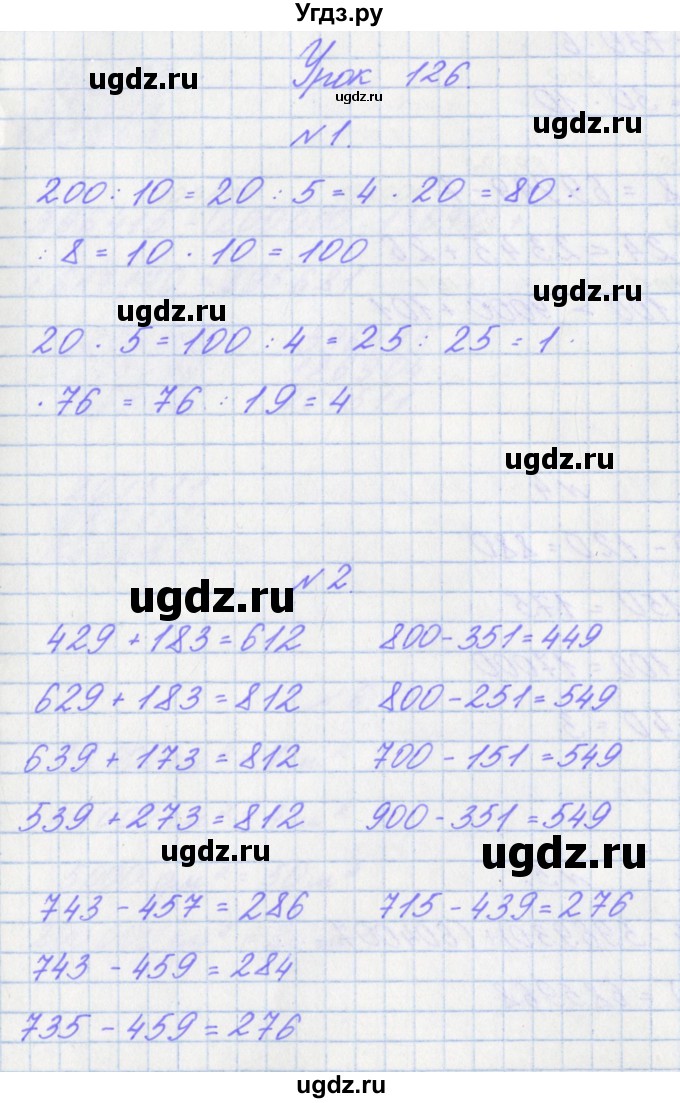 Угдз.ру
ugdz.ru
Урок 126.
ugdz.ru
ugdz.ru
N 1.
200 : 10 = 20 : 5 = 4 · 20 = 80 :
: 8 = 10 · 10 = 100
ugdz.ru
ugdz.ru
20 · 5 = 100 : 4 = 25 : 25 = 1 ·
· 76 = 76 : 19 = 4
ugdz.ru
N 2.
ugdz.ru
429 + 183 = 612 800 - 351 = 449
629 + 183 = 812 800 - 251 = 549
639 + 173 = 812 700 - 151 = 549
539 + 273 = 812 900 - 351 = 549
ugdz.ru ugdz.ru
743 - 457 = 286 715 - 439 = 276
743 - 459 = 284
735 - 459 = 276
ugdz.ru